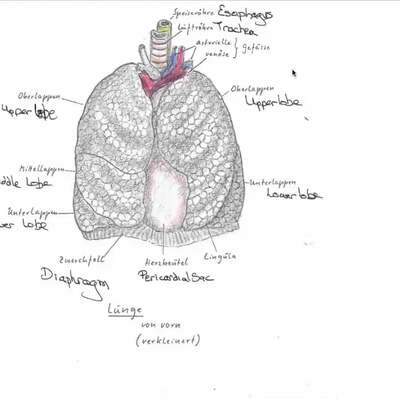 Speiseröhre Esophagus
Luftröhre Trachea
arterielle
venöse } Gefässe
Oberlappen
Upper lobe
Oberlappen
Upper lobe
Mittellappen
ddle Lobe
Unterlappen
Lower lobe
Unterlappen
wer Lobe
Zwerchfell
Diaphragm
Herzbeutel
Pericardial Sac
Lingula
Lunge
von vorn
(verkleinert)